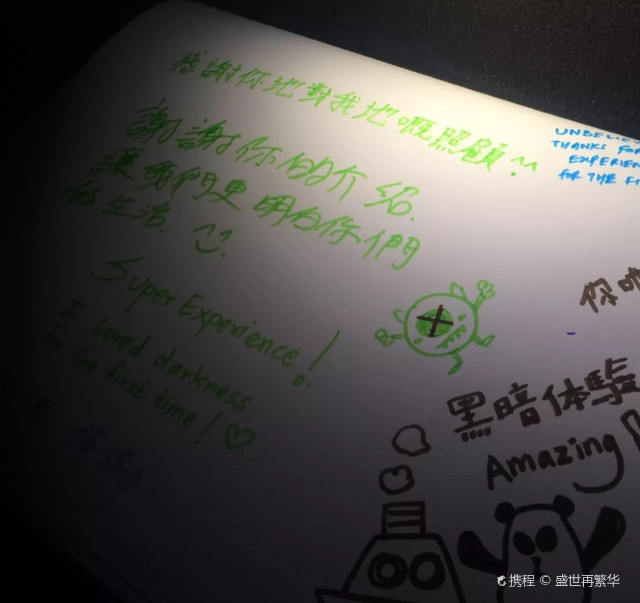 感謝你地對我地嘅照顧! ^^
謝謝你的介紹.
讓我們更明白你們
的生活.
Super Experience!
I loved darkness
for the first time! ♡
UNBELIEV
THANKS FOR
EXPERIEN
FOR THE FI
你哋
黑暗体驗
Amazing!
携程 © 盛世再繁华